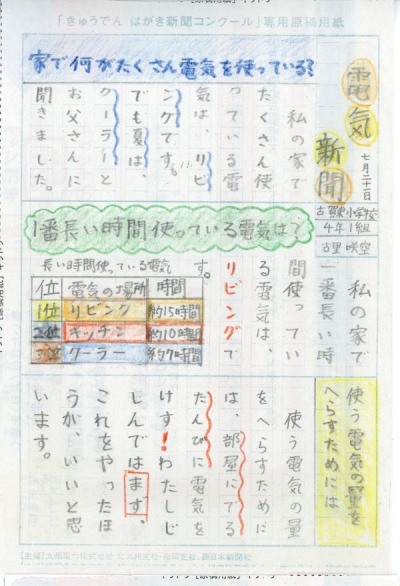 「きゅうでん はがき新聞コンクール」専用原稿用紙
電気新聞
古賀東小学校
4年1組
古里 咲空
家で何がたくさん電気を使っている?
私の家で
たくさん使
っている電
気は、リビ
ングです。
でも夏は、
クーラーと
お父さんに
聞きました。
1番長い時間使っている電気は?
私の家で
一番長い時
間使ってい
る電気は、
リビングで
す。
長い時間使っている電気
位 電気の場所 時間
1位 リビング 約15時間
2位 キッチン 約10時間
3位 クーラー 約7時間
使う電気の量を
へらすためには
使う電気の量
をへらすために
は、部屋にでる
たんびに電気を
けす!わたしじ
しんではまず、
これをやったほ
うが、いいと思
います。